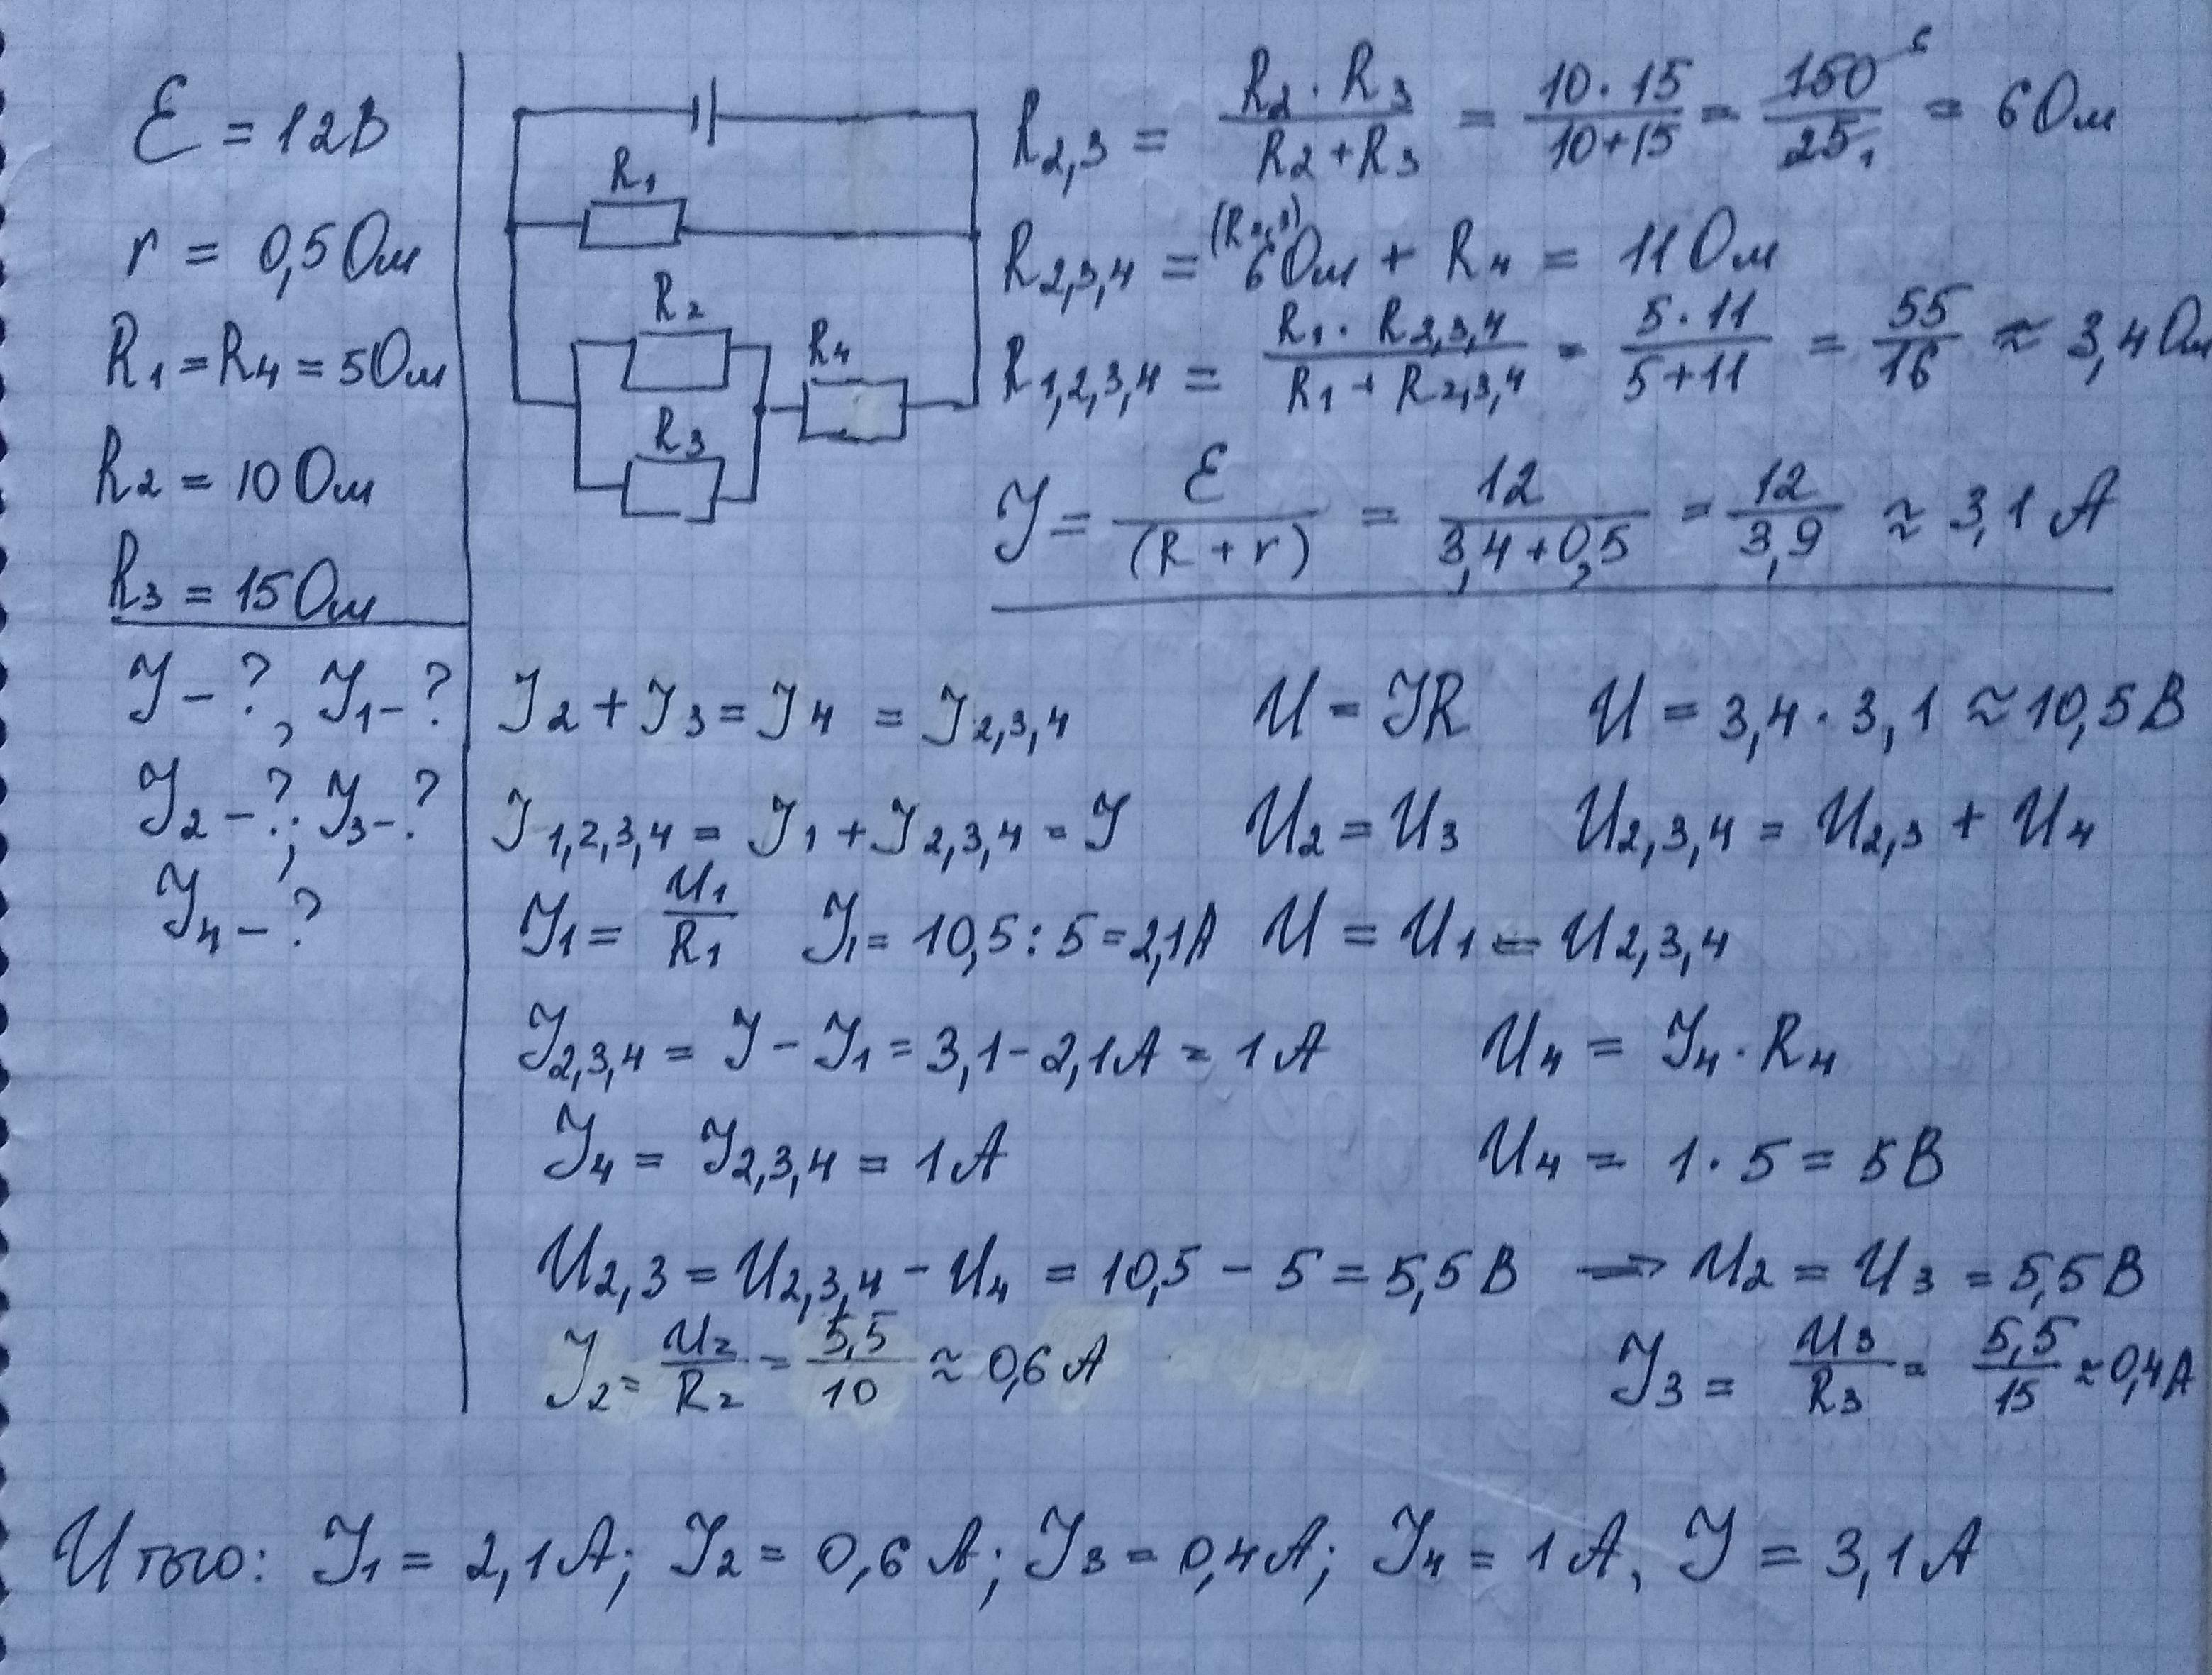 Ɛ = 12В
r = 0,5 Ом
R1 = R4 = 5 Ом
R2 = 10 Ом
R3 = 15 Ом
J – ?, J1 – ?
J2 – ?; J3 – ?
J4 – ?
R1
R2
R4
R3
R2,3 = R2 · R3 / R2 + R3 = 10 · 15 / 10 + 15 = 150 6 / 25 1 = 6 Ом
(R2,3)
R2,3,4 = 6 Ом + R4 = 11 Ом
R1,2,3,4 = R1 · R2,3,4 / R1 + R2,3,4 = 5 · 11 / 5 + 11 = 55 / 16 ≈ 3,4 Ом
J = Ɛ / (R + r) = 12 / 3,4 + 0,5 = 12 / 3,9 ≈ 3,1 А
J2 + J3 = J4 = J2,3,4 U = JR U = 3,4 · 3,1 ≈ 10,5 В
J1,2,3,4 = J1 + J2,3,4 = J U2 = U3 U2,3,4 = U2,3 + U4
J1 = U1 / R1 J1 = 10,5 : 5 = 2,1А U = U1 = U2,3,4
J2,3,4 = J – J1 = 3,1 – 2,1А = 1 А U4 = J4 · R4
J4 = J2,3,4 = 1 А U4 = 1 · 5 = 5 В
U2,3 = U2,3,4 – U4 = 10,5 – 5 = 5,5 В ⇒ U2 = U3 = 5,5 В
J2 = U2 / R2 = 5,5 / 10 ≈ 0,6 А J3 = U3 / R3 = 5,5 / 15 ≈ 0,4 А
Итого: J1 = 2,1 А; J2 = 0,6 А; J3 = 0,4А; J4 = 1 А, J = 3,1 А